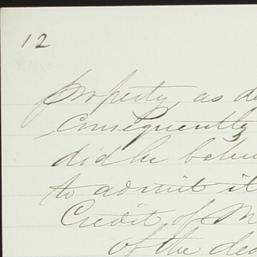 12
property, as de
Consequently
did he
to admit it
Credit of M
of the dec